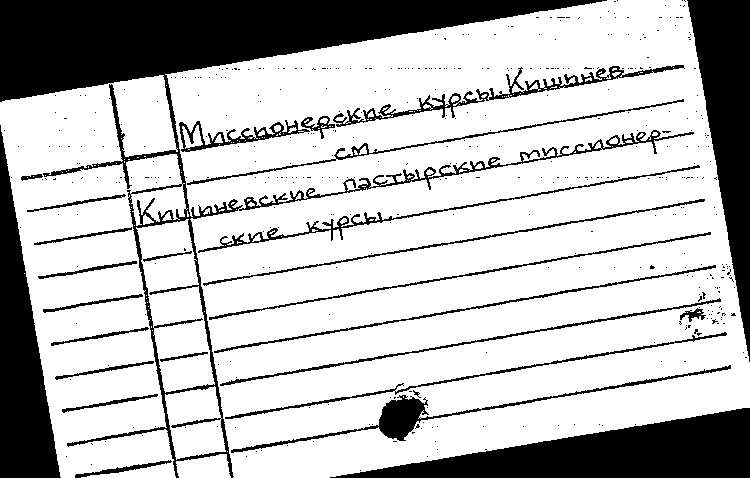 Миссионерские курсы. Кишинев
см.
Кишиневские пастырские миссионер-
ские курсы.